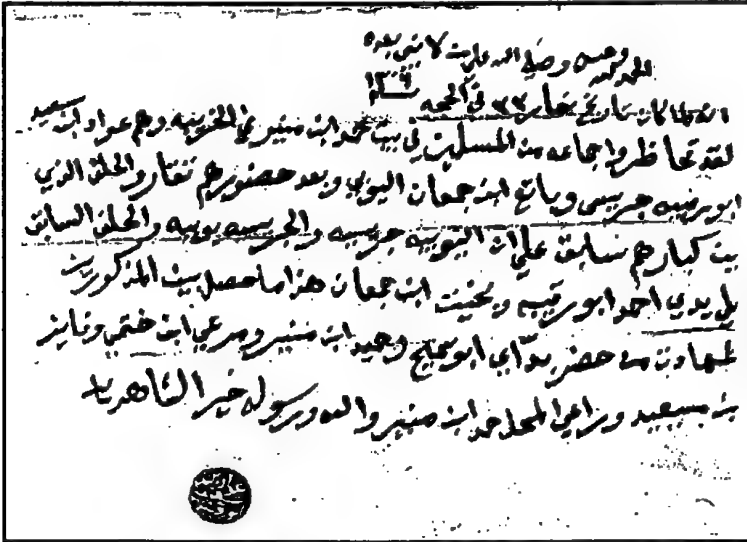 الحمد لله وحده وصلى الله على من لا نبي بعده
١٣٠٩
انه لما كان تاريخ نهار ٢٣ في الحجه
لقد تحاظروا جماعه من المسلمين في بيت محمد ابن منير في الخريبه وهم عواد ابن سعيد
ابو رقيبه جريسي وباتع ابن جمعان اليوبي وبعد حضورهم تقاروا الحلف الذي
بين كبارهم سابق علي ان اليوبيه جريسيه والجريسيه يوبيه والحلف السابق
بين يدي احمد ابو رقيبه وبخيت ابن جمعان هذا ما حصل بين المذكورين
شهادة من حضر ابو وحميد ابن منير ومرعي ابن وفايز
بن سعيد وراعي المحل احمد ابن منير والله ورسوله خير الشاهدين